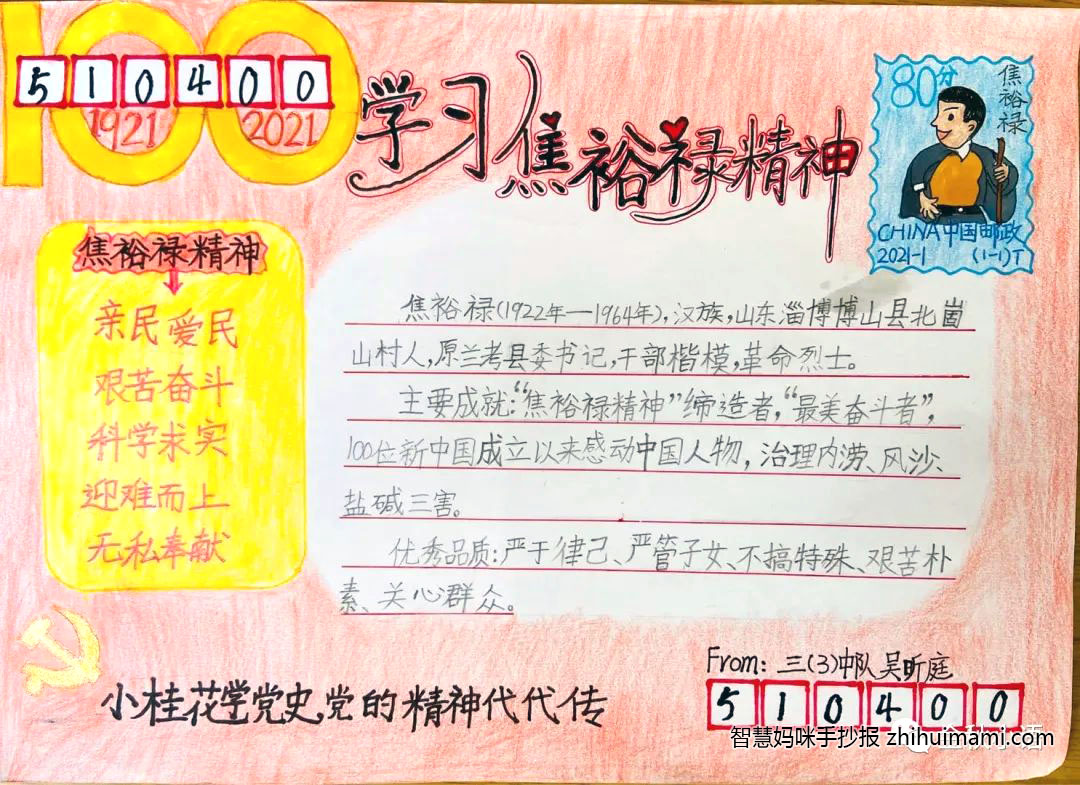 100
510400
1921 2021
学习焦裕禄精神
80分
焦裕禄
CHINA中国邮政
2021-1 (1-1)T
焦裕禄精神
亲民爱民
艰苦奋斗
科学求实
迎难而上
无私奉献
焦裕禄(1922年—1964年),汉族,山东淄博博山县北崮
山村人,原兰考县委书记,干部楷模,革命烈士。
主要成就:“焦裕禄精神”缔造者,“最美奋斗者”,
100位新中国成立以来感动中国人物,治理内涝、风沙、
盐碱三害。
优秀品质:严于律己、严管子女、不搞特殊、艰苦朴
素、关心群众。
小桂花学党史,党的精神代代传
From: 三(3)中队吴昕庭
510400
智慧妈咪手抄报 zhihuimami.com